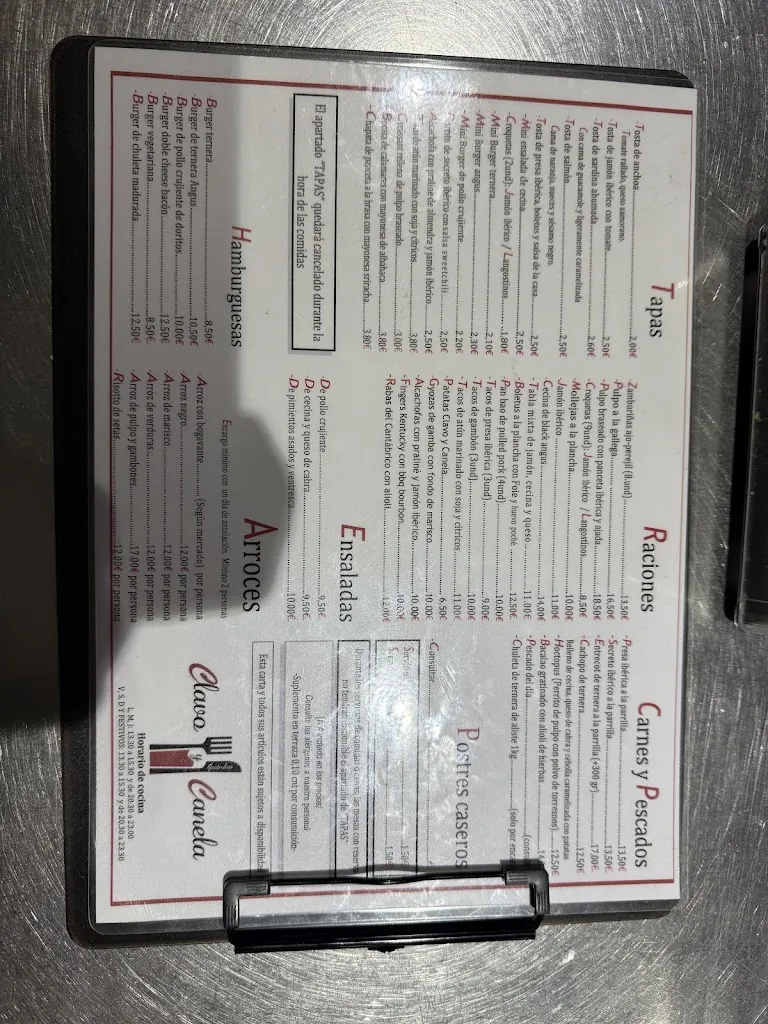 Tapas
-Tosta de anchoa............2,00€
Tomate rallado, queso zamorano.
-Tosta de jamón ibérico con tomate............2,50€
-Tosta de sardina ahumada............2,60€
Con cama de guacamole y ligeramente caramelizada
-Tosta de salmón............2,50€
Cama de naranja, nueces y sésamo negro.
-Tosta de presa ibérica, boletus y salsa de la casa............2,50€
-Mini ensalada de cecina............2,50€
-Croquetas (2und): Jamón ibérico / Langostinos............1,80€
-Mini Burger ternera............2,10€
-Mini Burger angus............2,30€
-Mini Burger de pollo crujiente............2,20€
de secreto ibérico con salsa sweetchili............2,50€
-Alcachofa con praliné de almendra y jamón ibérico............2,50€
de atún marinado con soja y cítricos............3,80€
-Croissant relleno de pulpo braseado............3,00€
de calamares con mayonesa de albahaca............3,80€
-Chapata de panceta a la brasa con mayonesa sriracha............3,80€
El apartado "TAPAS" quedará cancelado durante la
hora de las comidas
Hamburguesas
-Burger ternera............8,50€
-Burger de ternera Angus............10,50€
-Burger de pollo crujiente de doritos............10,00€
-Burger doble cheese bacon............12,50€
-Burger vegetariana............8,50€
-Burger de chuleta madurada............12,50€
Raciones
-Zamburiñas ajo-perejil (8und)............13,50€
-Pulpo a la gallega............16,50€
-Pulpo braseado con panceta ibérica y ajada............18,50€
-Croquetas (9und): Jamón ibérico / Langostinos............8,50€
-Mollejas a la plancha............10,00€
-Jamón ibérico............11,00€
-Cecina de black angus............14,00€
-Tabla mixta de jamón, cecina y queso............11,00€
-Boletus a la plancha con Foie y huevo poché............12,50€
-Pan bao de pulled pork (4und)............10,00€
-Tacos de presa ibérica (3und)............9,00€
-Tacos de gambón (3und)............10,00€
-Tacos de atún marinado con soja y cítricos............11,00€
-Patatas Clavo y Canela............6,50€
-Gyozas de gamba con fondo de marisco............10,00€
-Alcachofas con praliné y jamón ibérico............10,00€
-Fingers Kentucky con bbq bourbon............10,00€
-Rabas del Cantábrico con alioli............12,00€
Ensaladas
-De pollo crujiente............9,50€
-De cecina y queso de cabra............9,50€
-De pimientos asados y ventresca............10,00€
Arroces
Encargo mínimo con un día de antelación. Mínimo 2 personas
-Arroz con bogavante............(Según mercado) por persona
-Arroz negro............12,00€ por persona
-Arroz de marisco............12,00€ por persona
-Arroz de verduras............12,00€ por persona
-Arroz de pulpo y gambones............17,00€ por persona
-Risotto de setas............12,00€ por persona
Carnes y Pescados
-Presa ibérica a la parrilla............13,50€
-Secreto ibérico a la parrilla............13,50€
-Entrecot de ternera a la parrilla (+300 gr)............17,00€
-Cachopo de ternera............12,50€
Relleno de cecina, queso de cabra y cebolla caramelizada con patatas
-Hoctopus (Perrito de pulpo con polvo de torreznos)............12,50€
-Bacalao gratinado con alioli de hierbas............14
-Pescado del día............(cons
-Chuleta de ternera de aliste 1kg............(solo por enca
Postres caseros
-Consultar
Servicio............1,50
Ser............1,50
Durante los servicios de comidas o cenas, las mesas con reserva
no tendrán disponible el apartado de "TAPAS"
Consulte los alérgenos a nuestro personal
-Suplemento en terraza 0,10 cnt por consumición-
Esta carta y todos sus artículos están sujetos a disponibilidad
Clavo y Canela
Gastrobar
Horario de cocina
L, M, J: 13:30 a 15:30 y de 20:30 a 23:00
V, S, D Y FESTIVOS: 13:30 a 15:30 y de 20:30 a 23:30